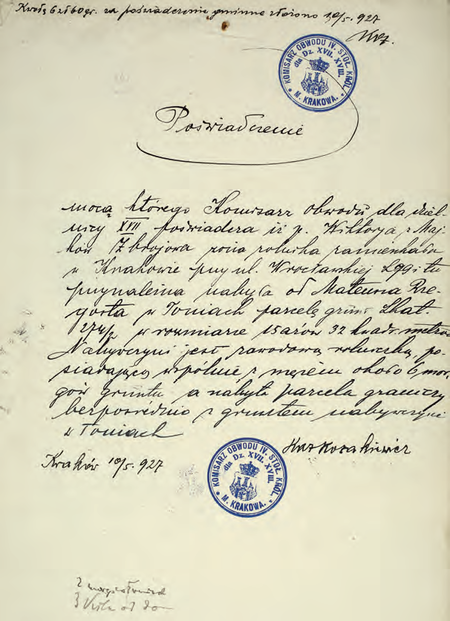 Kwotę 6 zł 60 gr. za poświadczenie gminne złożono 10/5. 927
KOMISARZ OBWODU IV. STOŁ. KRÓL.
dla Dz. XVII. XVIII.
M. KRAKOWA.
Poświadczenie
mocą którego Komisarz obwodu dla dziel-
nicy XVII poświadcza iż p. Wiktorya z Maj-
ków Zbrojowa żona rolnika zamieszkała
w Krakowie przy ul. Wrocławskiej
nabyła od Mateusza
w Toniach parcelę grunt Lkat.
274/2 w rozmiarze 15 arów 32 kwadr. metrów
Nabywczyni jest zawodową rolniczką, po-
siadającą wspólnie z mężem około 6 mor-
gów gruntu a nabyta parcela graniczy
bezpośrednio z gruntem nabywczyni
w Toniach
Kraków 10/5. 927
KOMISARZ OBWODU IV. STOŁ. KRÓL.
dla Dz. XVII. XVIII.
M. KRAKOWA.